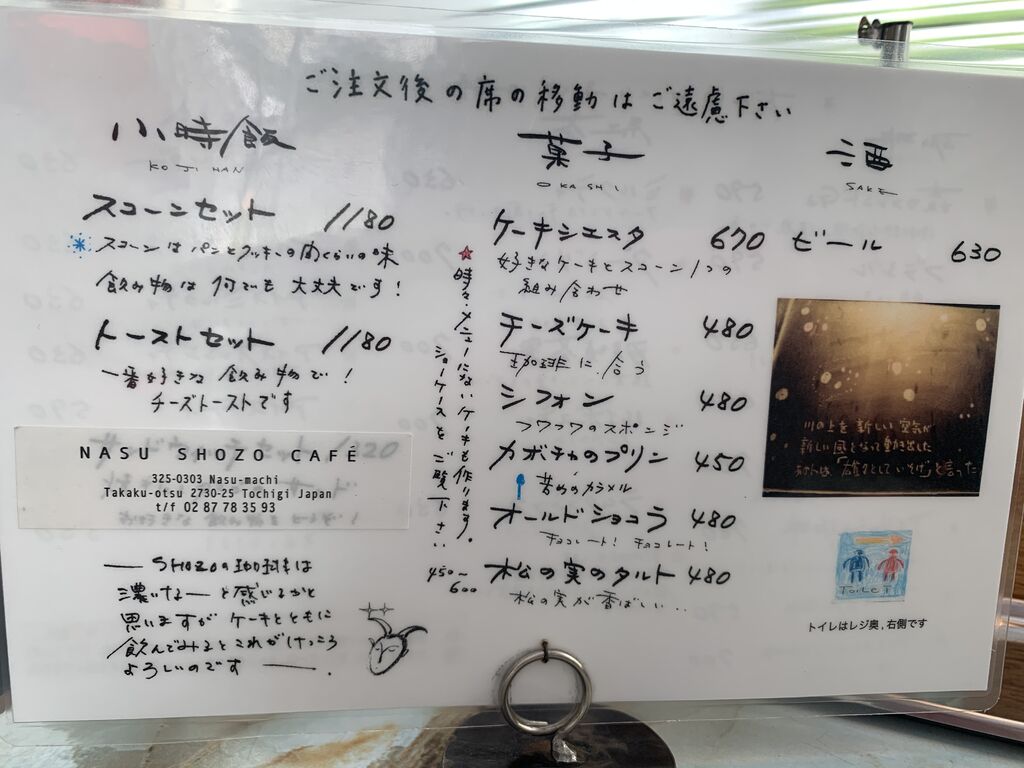 ご注文後の席の移動はご遠慮下さい
小時飯
KOJIHAN
スコーンセット 1180
スコーンはパンとクッキーの間くらいの味
飲み物は何でも大丈夫です!
トーストセット 1180
一番好きな飲み物で!
チーズトーストです
NASU SHOZO CAFÉ
325-0303 Nasu-machi
Takaku-otsu 2730-25 Tochigi Japan
t/f 02 87 78 35 93
SHOZOの珈琲は
濃いなーと感じるかと
思いますがケーキとともに
飲んでみるとこれがけっこう
よろしいのです
★時々、メニューにないケーキも作ります。
ショーケースをご覧下さい
450〜
600
菓子
OKASHI
ケーキシエスタ 670
好きなケーキとスコーン1つの
組み合わせ
チーズケーキ 480
珈琲に合う
シフォン 480
フワフワのスポンジ
カボチャのプリン 450
昔めのカラメル
オールドショコラ 480
チョコレート! チョコレート!
松の実のタルト 480
松の実が香ばしい..
酒
SAKE
ビール 630
川の上を新しい空気が
新しい風となって動き出した
TOILET
トイレはレジ奥,右側です